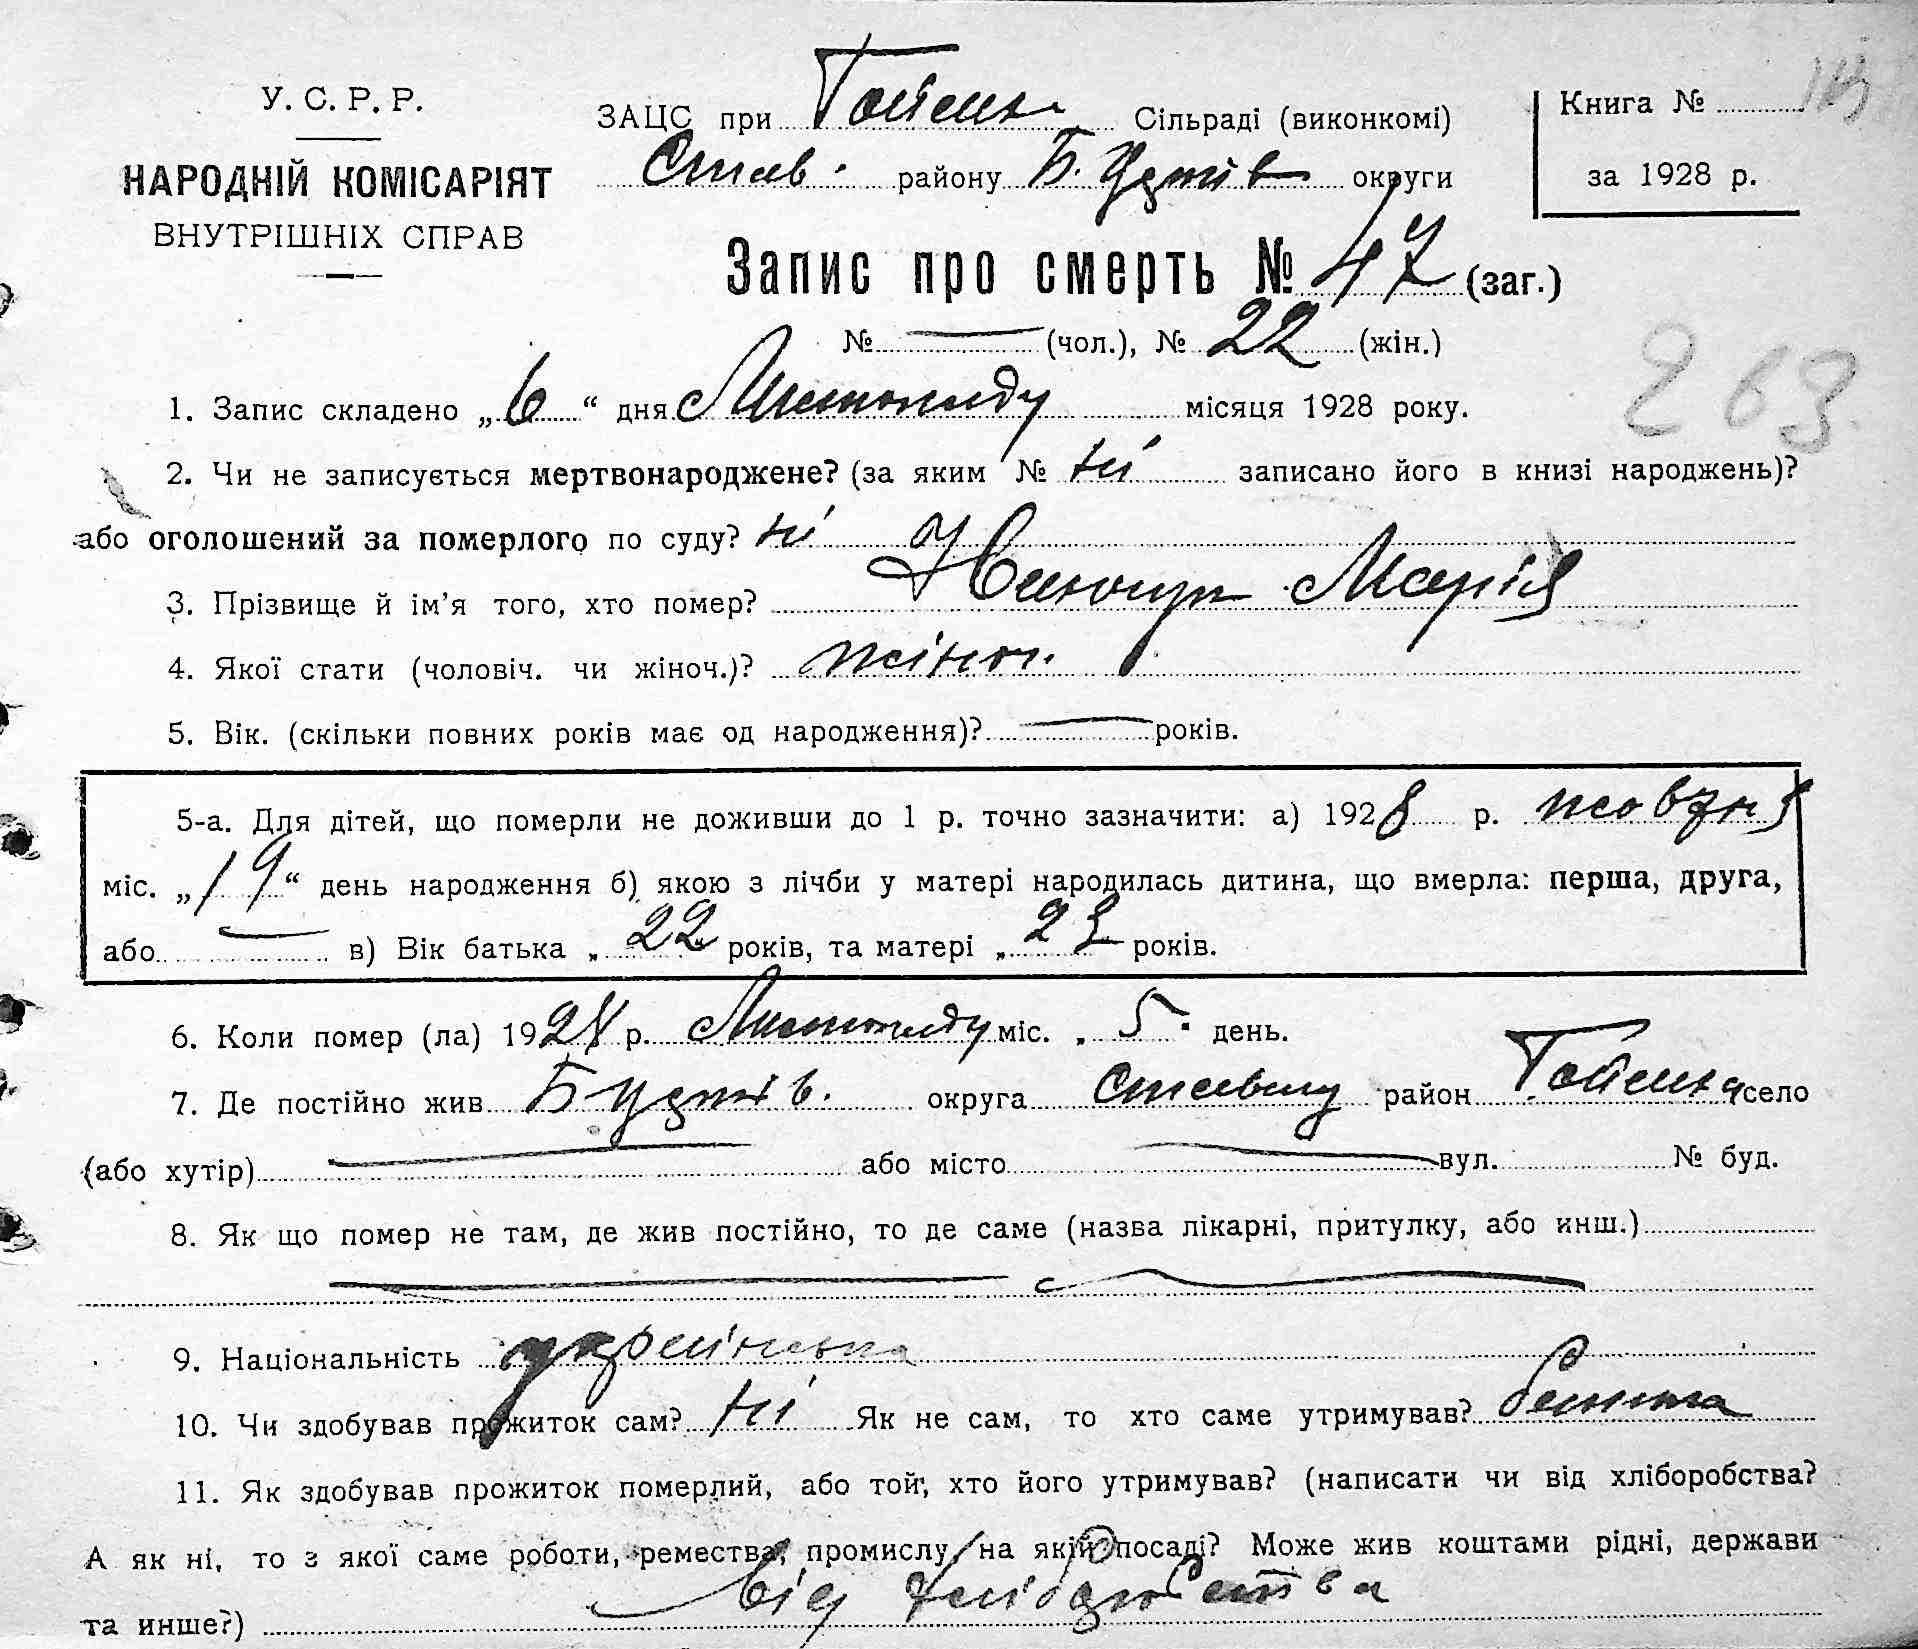 У. С. Р. Р.
НАРОДНІЙ КОМІСАРІЯТ
ВНУТРІШНІХ СПРАВ
ЗАЦС при Гойсин Сільраді (виконкомі)
Став. району Б. округи
Книга №
за 1928 р.
Запис про смерть № 47 (заг.)
№ — (чол.), № 22 (жін.)
263
1. Запис складено „6“ дня Листопаду місяця 1928 року.
2. Чи не записується мертвонароджене? (за яким № ні записано його в книзі народжень)?
або оголошений за померлого по суду? ні
3. Прізвище й ім’я того, хто помер? Марія
4. Якої стати (чоловіч. чи жіноч.)? жіноч.
5. Вік. (скільки повних років має од народження)? — років.
5-а. Для дітей, що померли не доживши до 1 р. точно зазначити: а) 1928 р. жовтня
міс. „19“ день народження б) якою з лічби у матері народилась дитина, що вмерла: перша, друга,
або — в) Вік батька „22 років, та матері „23 років.
6. Коли помер (ла) 1928 р. Листопаду міс. „5" день.
7. Де постійно жив Б округа Ставищ район село
(або хутір) — або місто — вул. № буд.
8. Як що помер не там, де жив постійно, то де саме (назва лікарні, притулку, або инш.)
9. Національність українська
10. Чи здобував прожиток сам? ні Як не сам, то хто саме утримував?
11. Як здобував прожиток померлий, або той, хто його утримував? (написати чи від хліборобства?
А як ні, то з якої саме роботи, ремества, промислу, на якій посаді? Може жив коштами рідні, держави
та инше?) від хліборобства